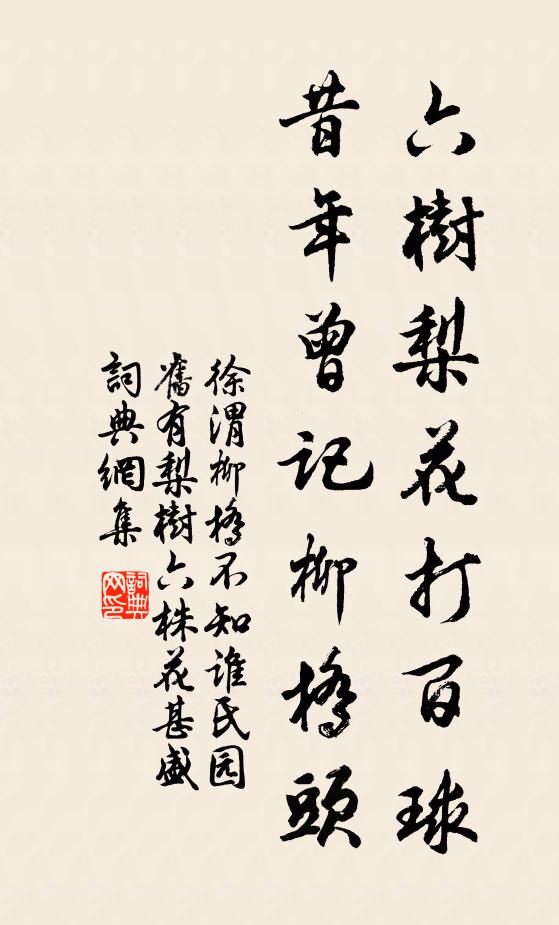 六樹梨花打百球
昔年曾記柳橋頭
徐渭柳橋不知誰氏园
舊有梨樹六株花甚盛
詞典網集
詞典网印